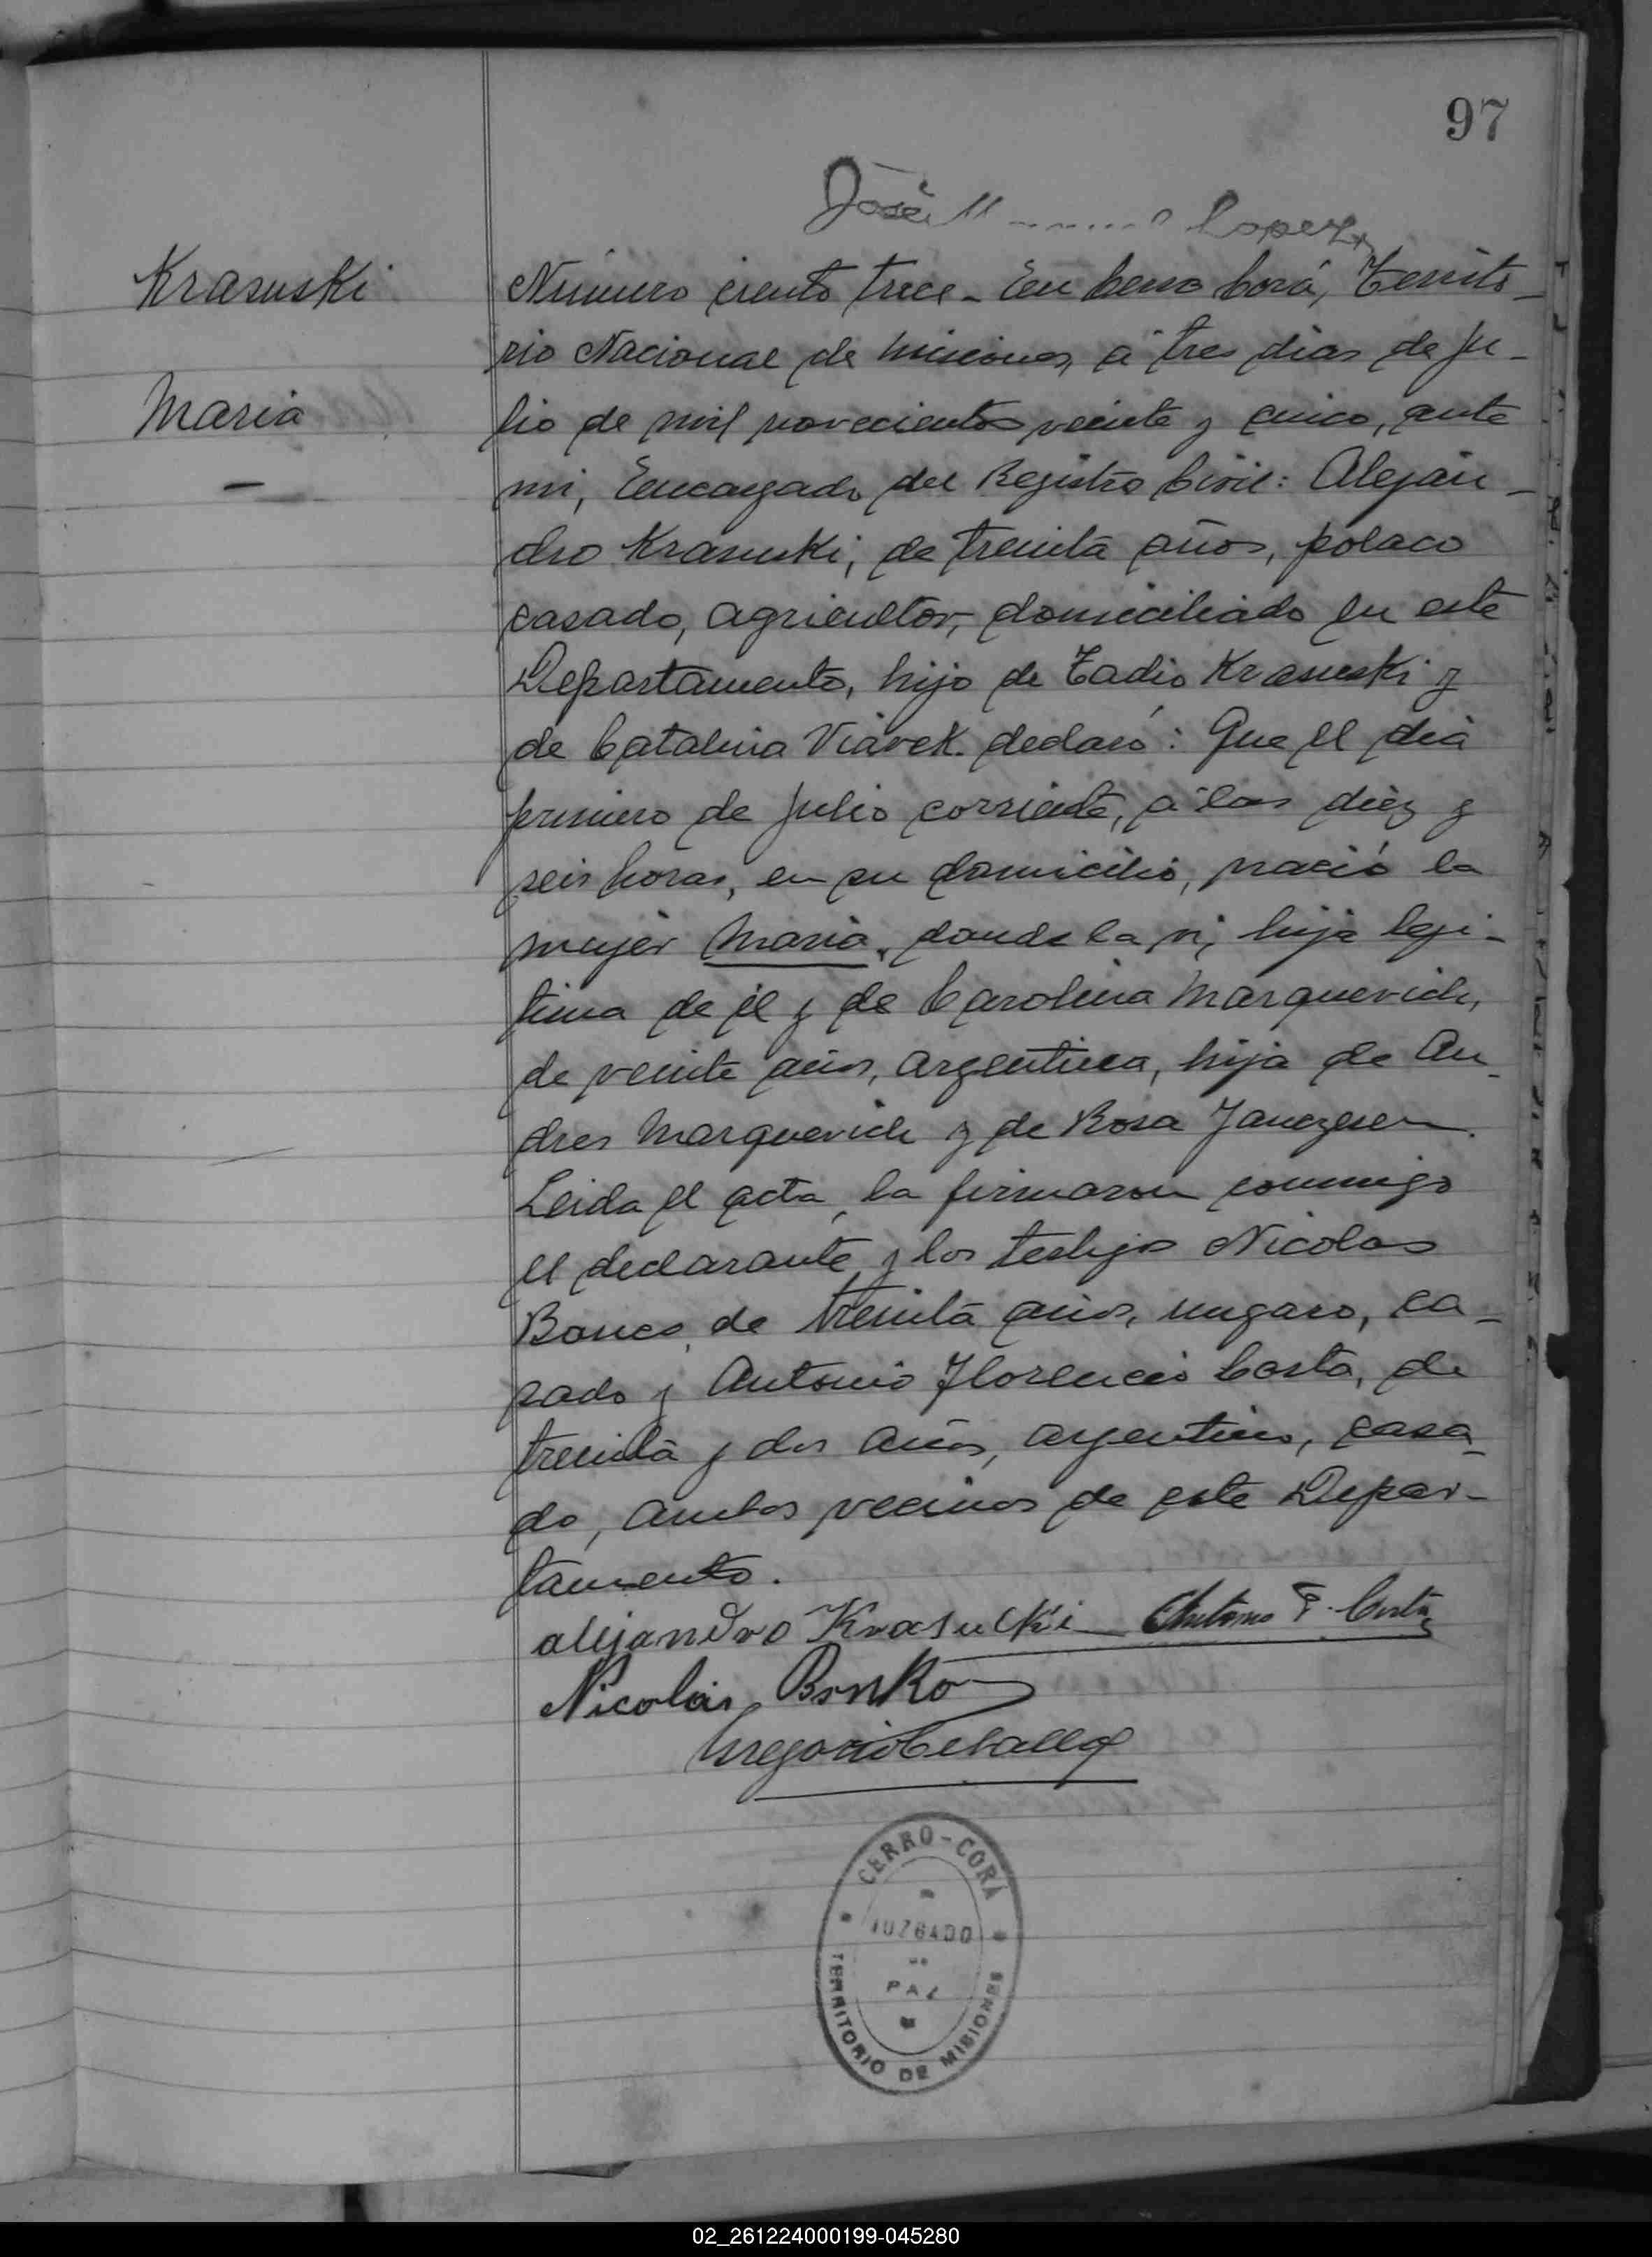 97
José Lopez
Krasuski
Maria
Número ciento trece - En Cerro Corá, Territo-
rio Nacional de Misiones, á tres dias de Ju-
lio de mil novecientos veinte y cinco, ante
mi, Encargado del Registro Civil: Alejan-
dro Krasuski, de treinta años, polaco
casado, agricultor, domiciliado en este
Departamento, hijo de Tadio Krasuski y
de Catalina Viavek. declaró: Que el dia
primero de Julio corriente, á las diez y
seis horas, en su domicilio, nació la
mujer Maria, donde la vi, hija legi-
tima de él y de Carolina Marquevich,
de veinte años, argentina, hija de An-
dres Marquevich y de Rosa
Leida el acta, la firmaron conmigo
el declarante y los testigos Nicolas
Bonco, de treinta años, ungaro, ca-
sado y Antonio Florencio Costa, de
treinta y dos años, argentino, casa-
do, ambos vecinos de este Depar-
tamento.
alejandro Krasucki Antonio F. Costa
Nicolas Bonko
Gregorio Ceballos
CERRO-CORÁ
JUZGADO
DE
PAZ
TERRITORIO DE MISIONES
02_261224000199-045280